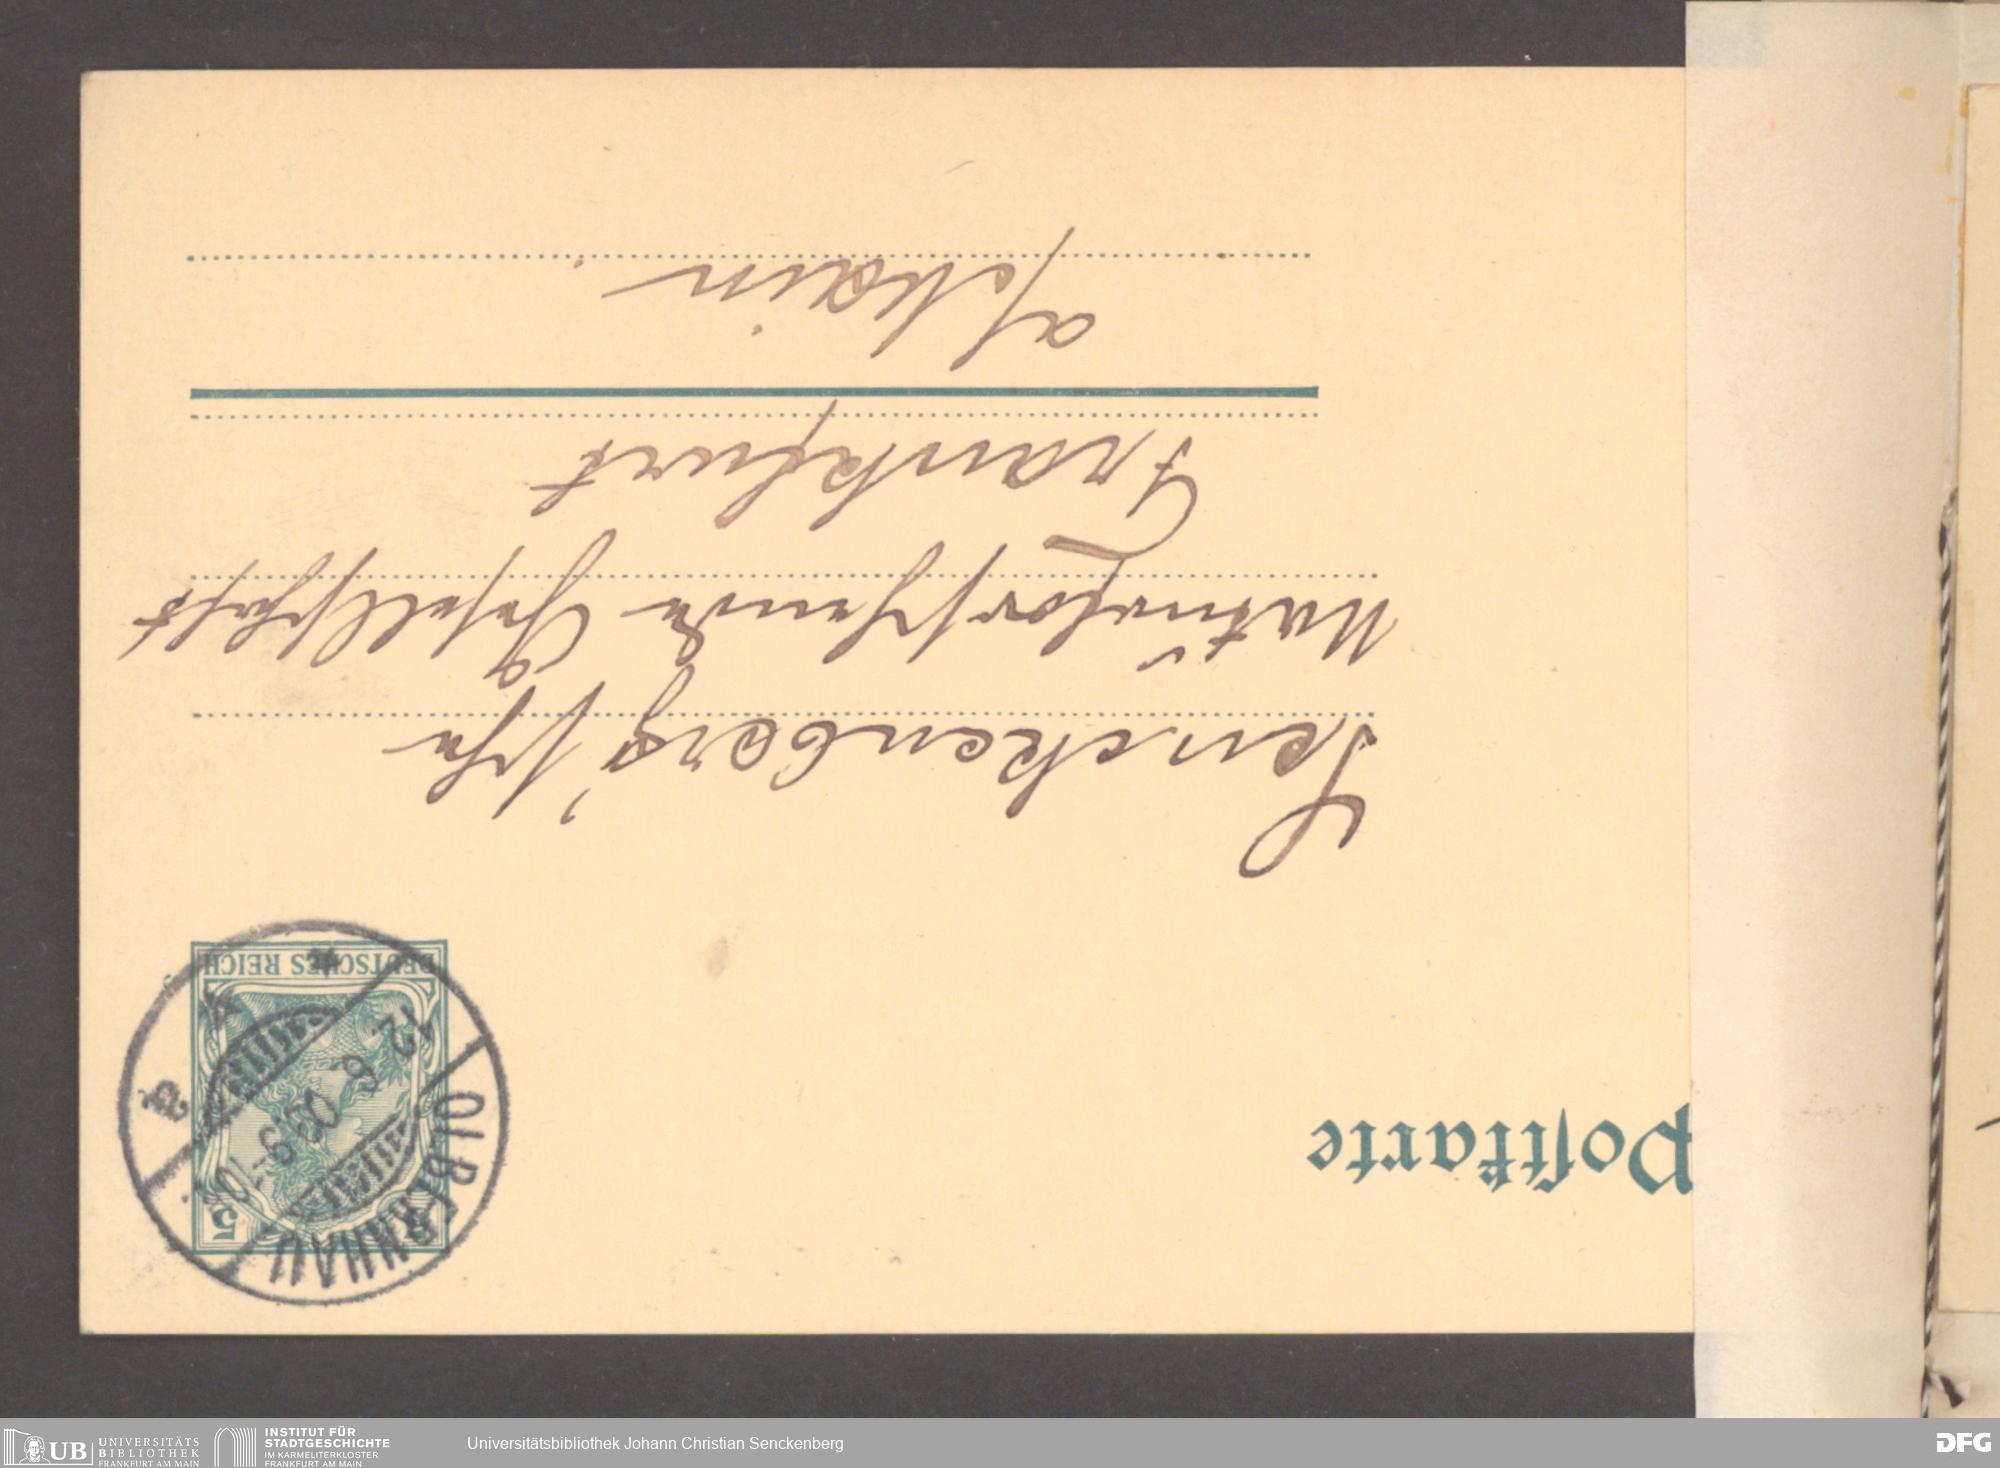 Postkarte
DEUTSCHES REICH
5
OLBERNHAU
12. 6. 00. 9-10 V.
Senckenberg'sche
Naturforschende Gesellschaft
Frankfurt
a/Main.
UB UNIVERSITÄTS
BIBLIOTHEK
FRANKFURT AM MAIN
INSTITUT FÜR
STADTGESCHICHTE
IM KARMELITERKLOSTER
FRANKFURT AM MAIN
Universitätsbibliothek Johann Christian Senckenberg
DFG